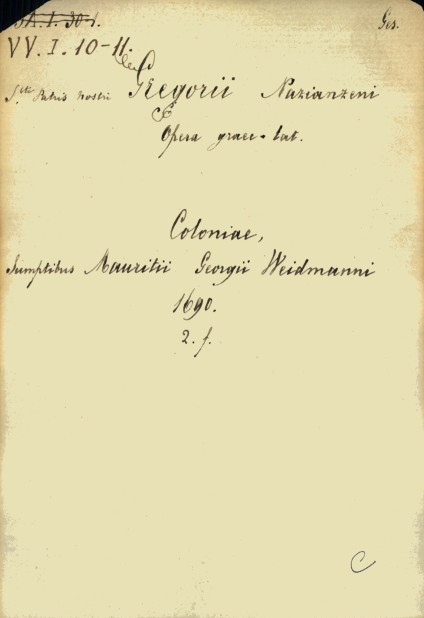 Ges.
VV. I. 10-11.
S.cti Patris nostri Gregorii Nazianzeni
Opera graec-lat.
Coloniae,
Sumptibus Mauritii Georgii Weidmanni
1690.
2. f.
C